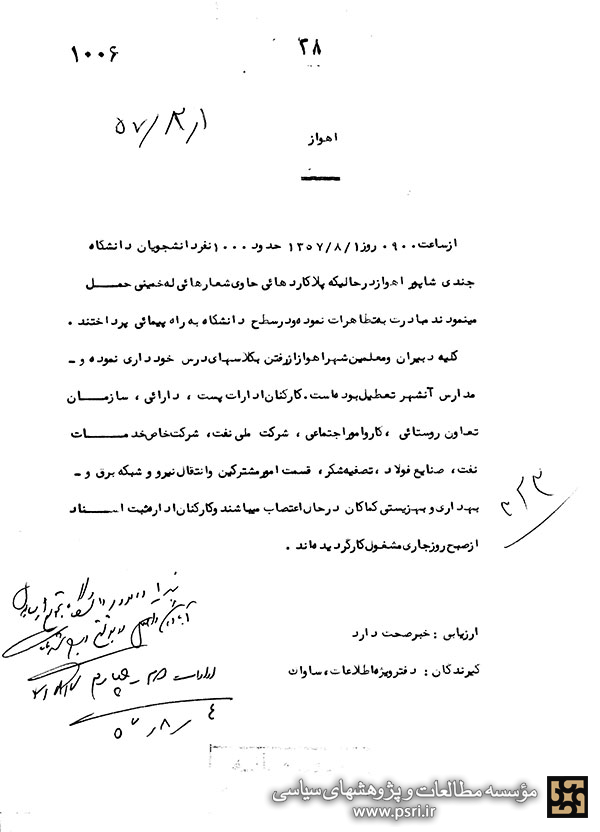 ۲۸
۱۰۰۶
۵۷/۸/۱
اهواز
ازساعت ۰۹۰۰ روز ۱۳۵۷/۸/۱ حدود ۱۰۰۰ نفردانشجویان دانشگاه
جندی شاپور اهوازدرحالیکه پلاکاردهائی حاوی شعارهائی له خمینی حمـــل
مینمودند مبادرت به تظاهرات نموده ودرسطح دانشگاه به راه پیمائی پرداختند .
کلیه دبیران ومعلمین شهراهوازازرفتن بکلاسهای درس خودداری نموده و ـ
مدارس آنشهر تعطیل بوده است. کارکنان ادارات پست ، دارائی ، سازمـــان
تعاون روستائی ، کاروامور اجتماعی ، شرکت ملی نفت، شرکت خاص خدمـــات
نفت، صنایع فولاد ، تصفیه شکر، قسمت امورمشترکین وانتقال نیرو و شبکه برق و ـ
بهداری و بهزیستی کماکان درحال اعتصاب میباشند وکارکنان اداره ثبت اسنـاد
ازصبح روزجاری مشغول کارگردیده اند .
ارزیابی : خبرصحت دارد
گیرندگان : دفترویژه اطلاعات، ساواک
۵۷/۸/۴
مؤسسه مطالعات و پژوهشهای سیاسی
www.psri.ir